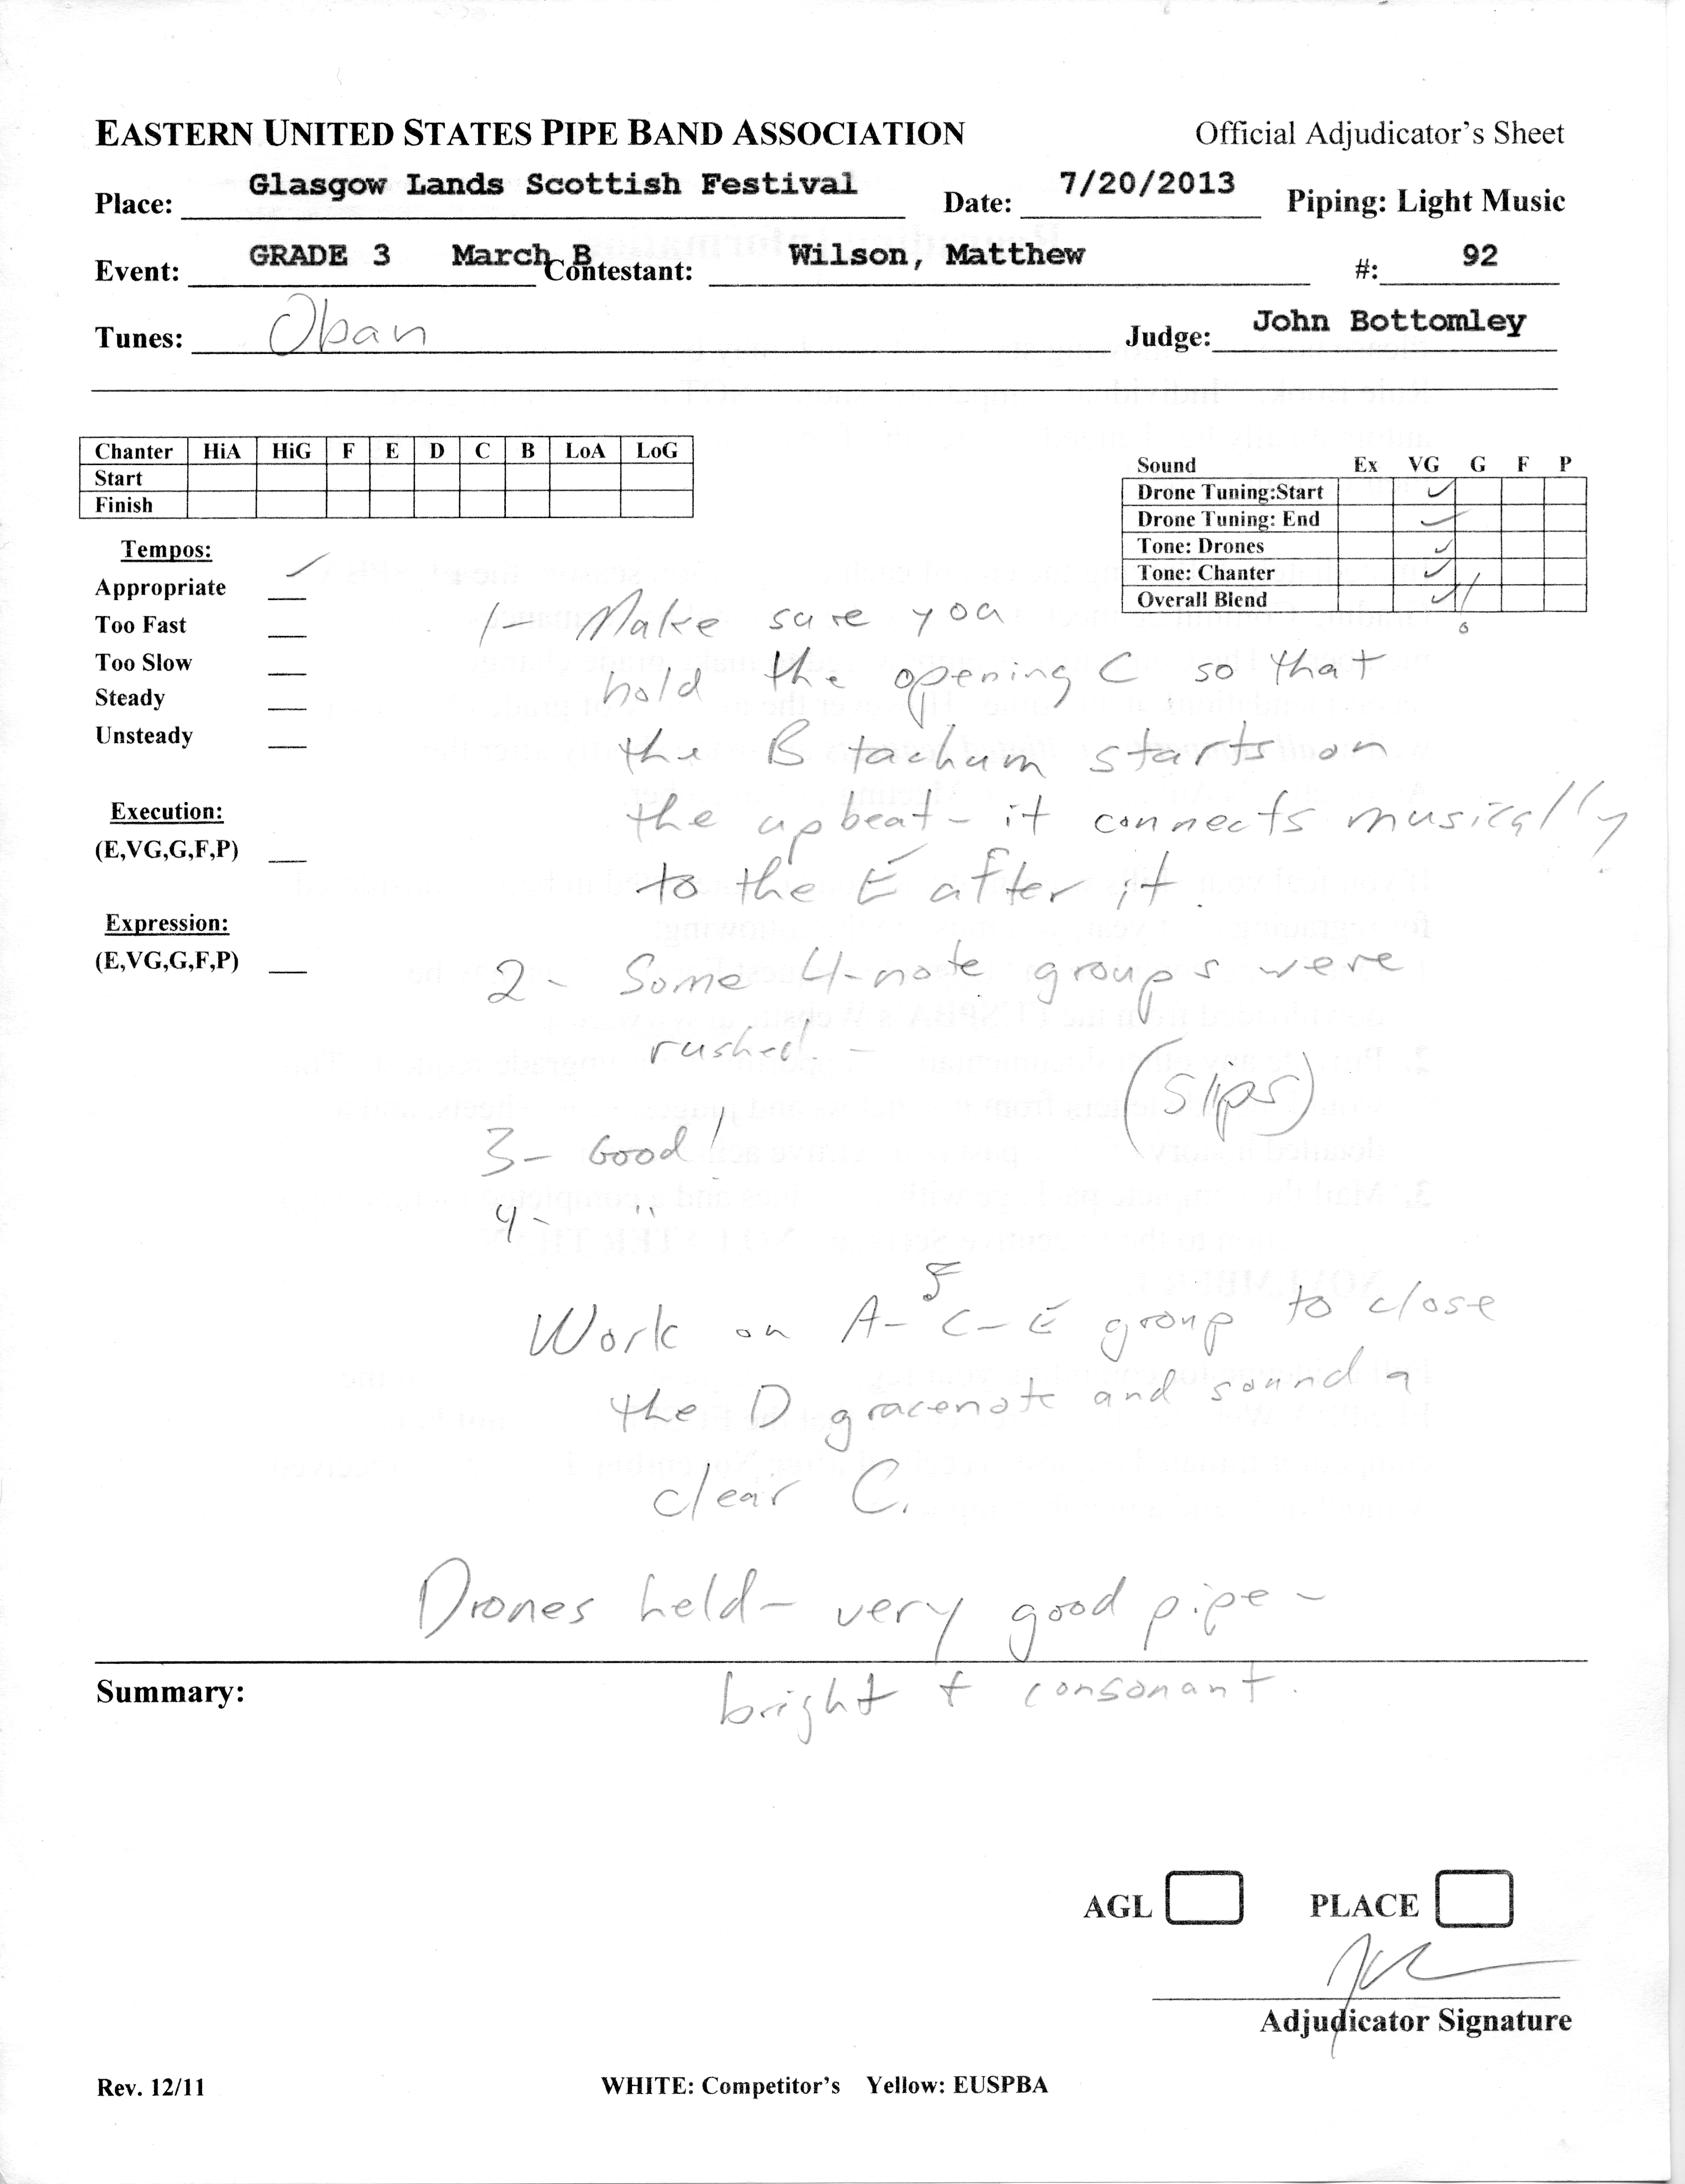 EASTERN UNITED STATES PIPE BAND ASSOCIATION Official Adjudicator's Sheet
Place: Glasgow Lands Scottish Festival Date: 7/20/2013 Piping: Light Music
Event: GRADE 3 March B Contestant: Wilson, Matthew #: 92
Tunes: Oban Judge: John Bottomley
Chanter HiA HiG F E D C B LoA LoG
Start
Finish
Sound Ex VG G F P
Drone Tuning:Start ✓
Drone Tuning: End ✓
Tone: Drones ✓
Tone: Chanter ✓
Overall Blend ✓!
Tempos:
Appropriate ✓
Too Fast
Too Slow
Steady
Unsteady
Execution:
(E,VG,G,F,P)
Expression:
(E,VG,G,F,P)
1- Make sure you
hold the opening C so that
the B tachum starts on
the upbeat - it connects musically
to the E after it.
2- Some 4-note groups were
rushed. -
(slips)
3- Good!
4- "
Work on A- C- E group to close
the D gracenote and sound a
clear C.
Drones held - very good pipe -
bright + consonant.
Summary:
AGL PLACE
Adjudicator Signature
Rev. 12/11 WHITE: Competitor's Yellow: EUSPBA